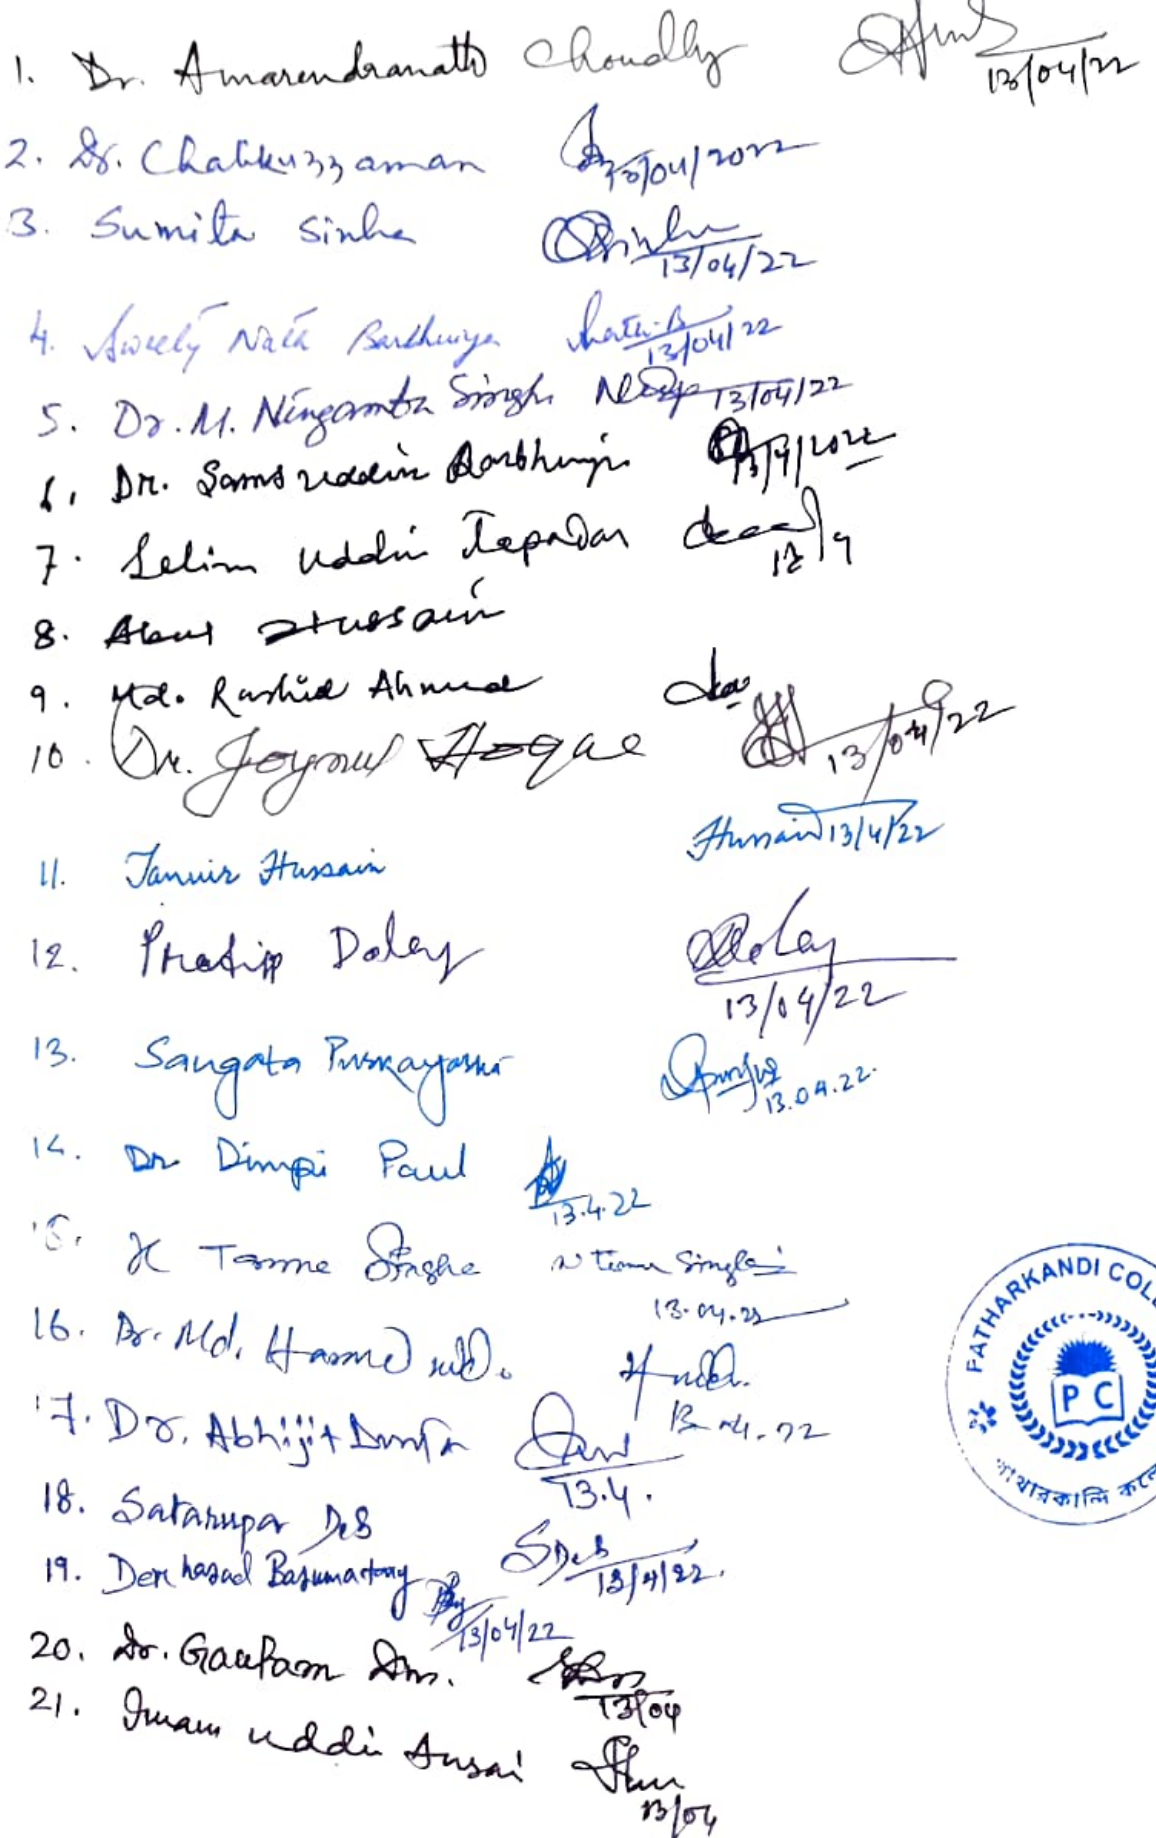 1. Dr. Amarendranath Choudhy 13/04/22
2. Dr. Chalikuzzaman 13/04/2022
3. Sumita Sinha Sinha 13/04/22
4. Sweety Nath Barbhuiya Nath.B 13/04/22
5. Dr. M. Ningamba Singha 13/04/22
6. Dr. Samsuddin Barbhuiya 13/4/2022
7. Selim Uddin Tapadar 13/4
8. Hussain
9. Md. Rashid Ahmed
10. Dr. Joynul Hoque 13/04/22
11. Tanvir Hussain Hussain 13/4/22
12. Pradip Doley Doley 13/04/22
13. Sangata Purkayastha 13.04.22.
14. Dr Dimpi Paul 13.4.22
15. Singha Singha 13.04.22
16. Dr. Md. 13.04.22
17. Dr. Abhijit Dutta 13.4.
18. Satarupa Deb SDeb 13/4/22.
19. Basumatary 13/04/22
20. Dr. Gautam Das. 13/04
21. Imam uddin Ansari 13/04
PATHARKANDI COLL
P C
পাথারকান্দি কলে